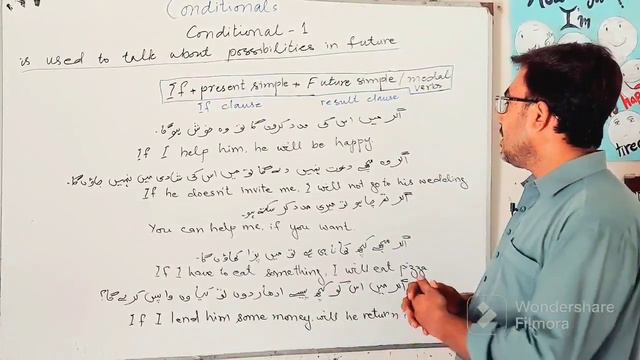 Conditionals
Conditional - 1
is used to talk about possibilities in future
If + present simple + Future simple / modal verbs
If clause result clause
اگر میں اس کی مدد کروں گا تو وہ خوش ہوگا۔
If I help him, he will be happy.
اگر وہ مجھے دعوت نہیں دے گا تو میں اس کی شادی میں نہیں جاؤں گا۔
If he doesn't invite me, I will not go to his wedding
اگر تم چاہو تو میری مدد کر سکتے ہو۔
You can help me, if you want.
اگر مجھے کچھ کھانا ہی ہے تو میں پزا کھاؤں گا۔
If I have to eat something, I will eat pizza
اگر میں اس کو کچھ پیسے ادھار دوں تو کیا وہ واپس کرے گا؟
If I lend him some money, will he return
I'm
tired
Wondershare
Filmora